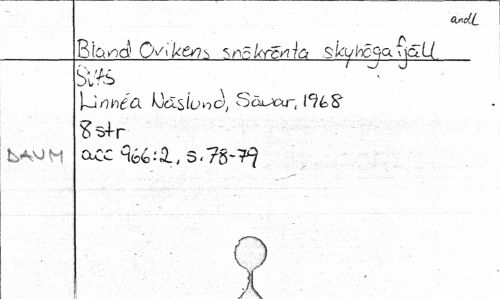 andl
Bland Ovikens snökrönta skyhöga fjäll
SVFS
Linnéa Näslund, Sävar, 1968
8 str
DAUM acc 966:2, s. 78-79